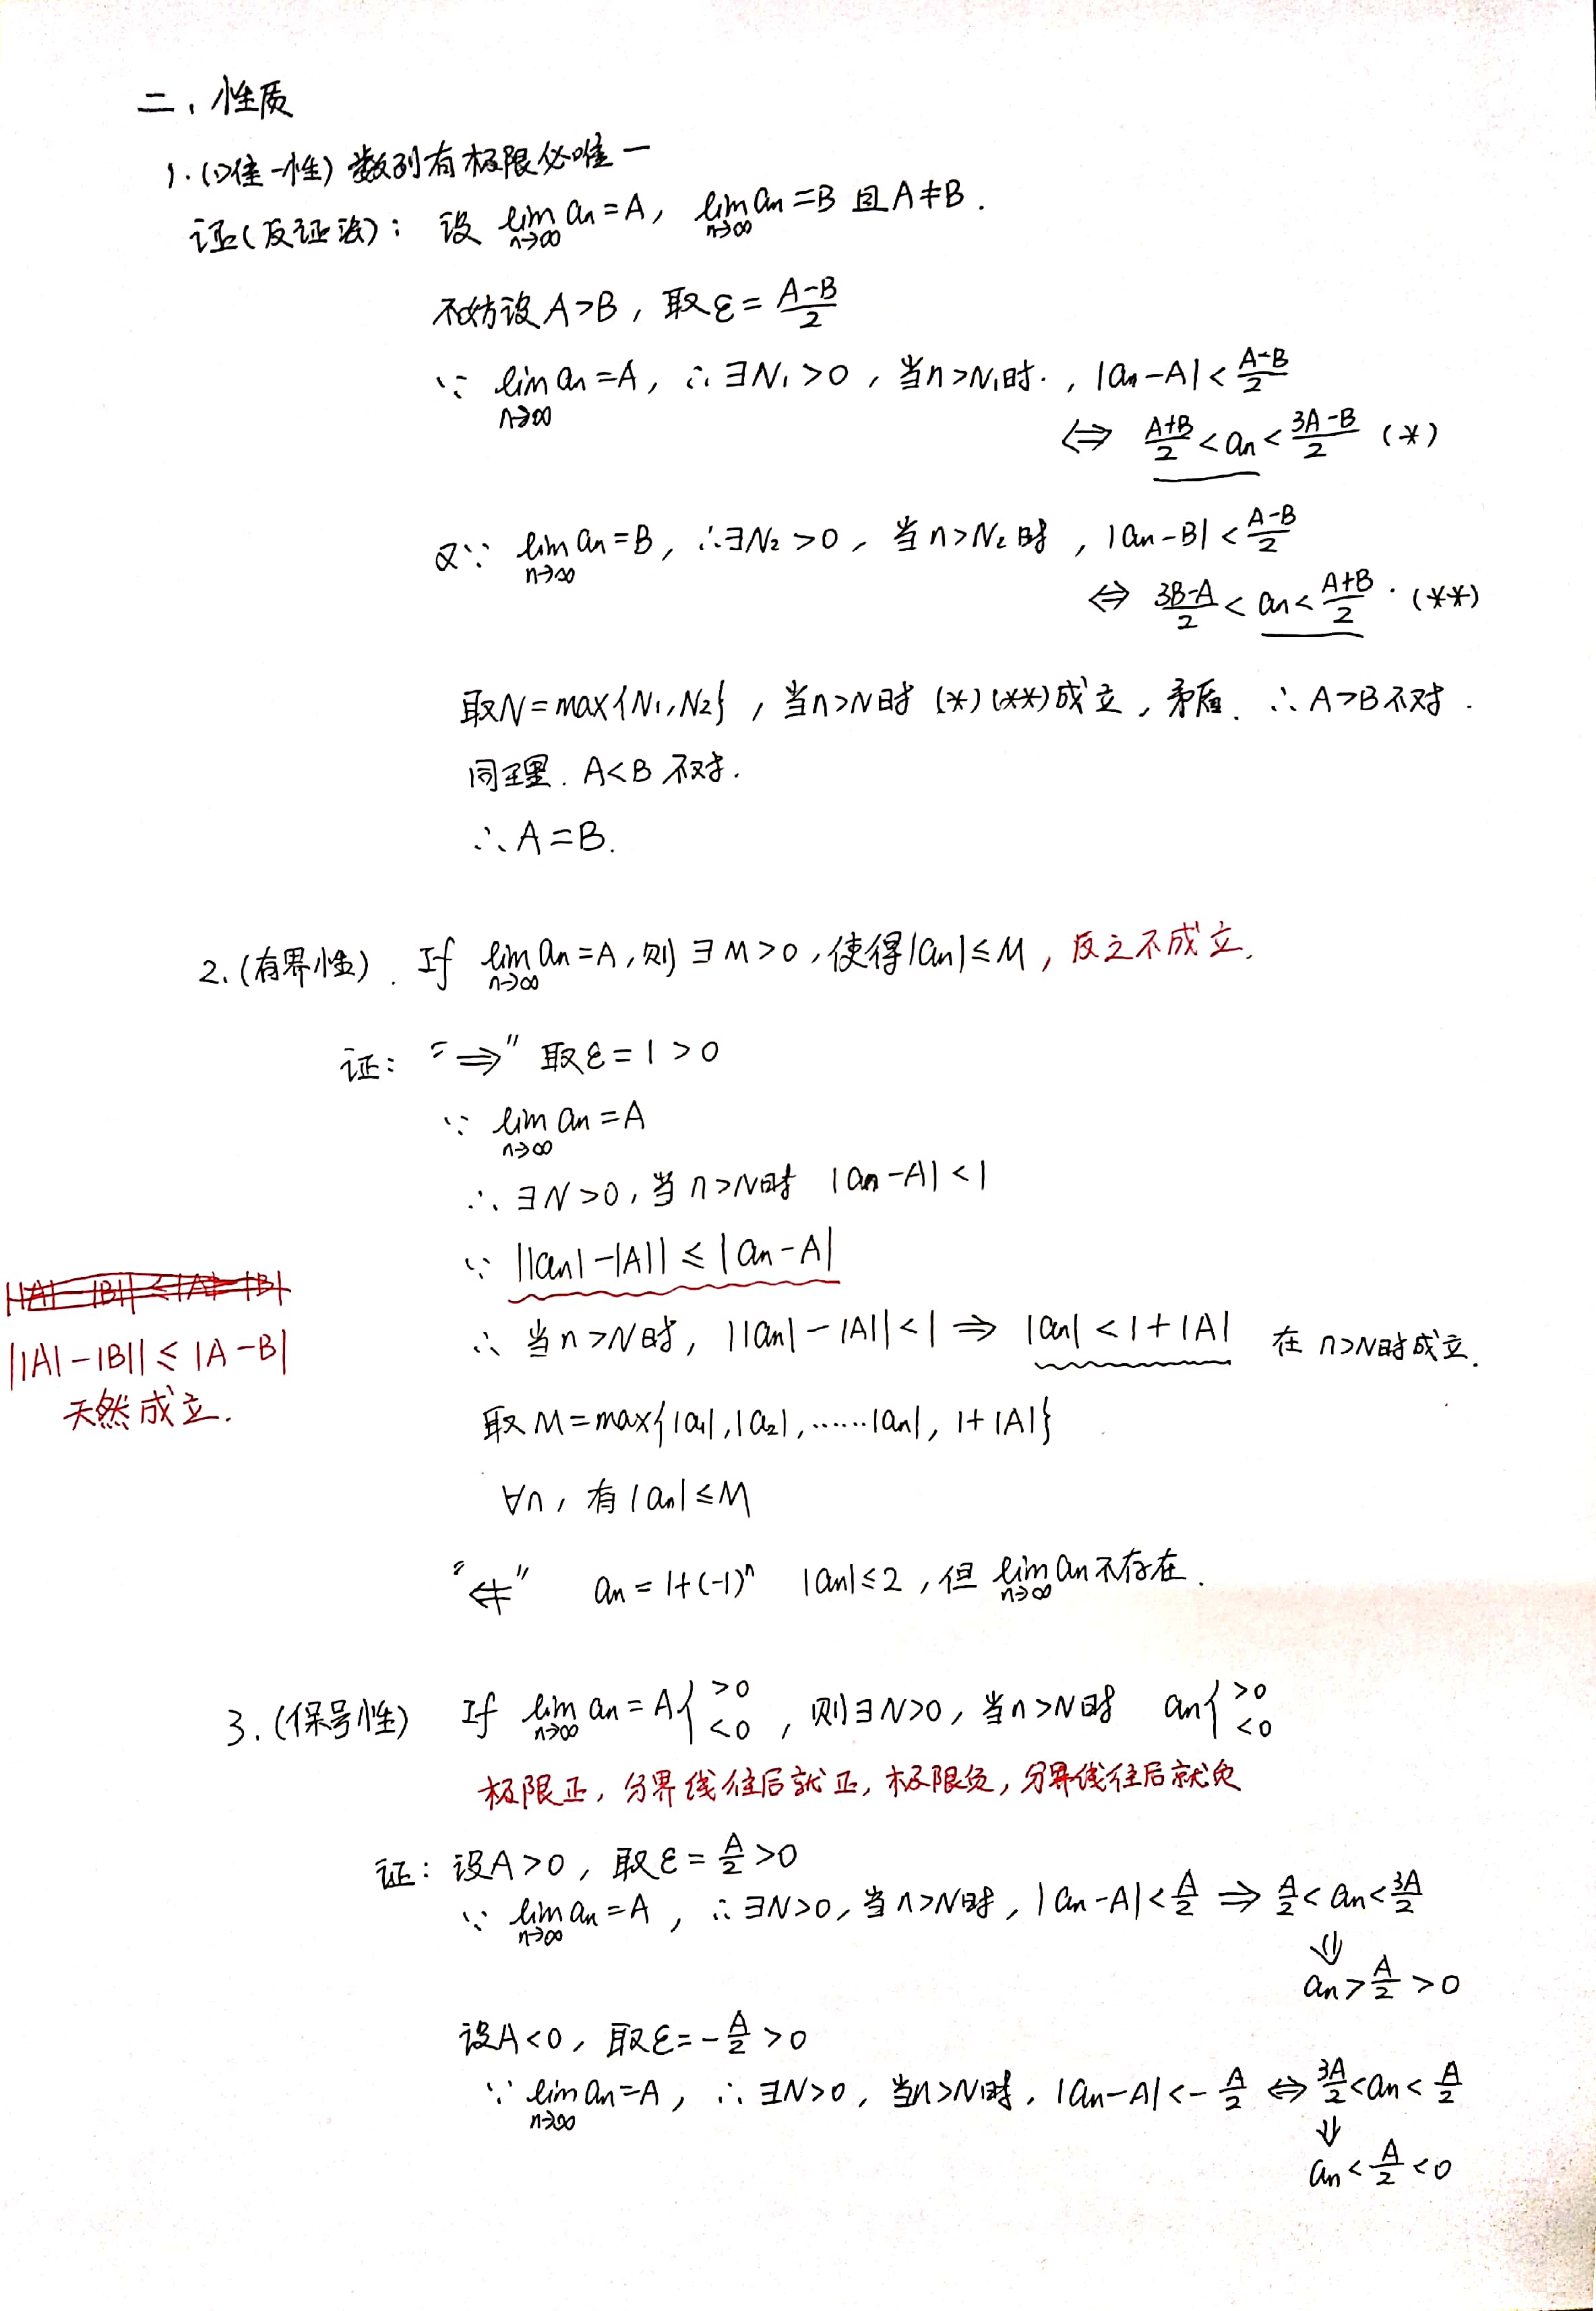 二、性质
1.(唯一性) 数列有极限必唯一
证(反证法): 设 lim_{n→∞} an = A, lim_{n→∞} an = B 且 A≠B.
不妨设 A>B, 取 ε = (A-B)/2
∵ lim_{n→∞} an = A, ∴∃N₁>0, 当n>N₁时, |an-A| < (A-B)/2
⇔ (A+B)/2 < an < (3A-B)/2 (*)
又∵ lim_{n→∞} an = B, ∴∃N₂>0, 当n>N₂时, |an-B| < (A-B)/2
⇔ (3B-A)/2 < an < (A+B)/2. (**)
取N=max{N₁,N₂}, 当n>N时 (*)(**)成立, 矛盾. ∴A>B不对.
同理. A<B 不对.
∴A=B.
2.(有界性). If lim_{n→∞} an = A, 则 ∃M>0, 使得|an|≤M, 反之不成立.
证: "⇒" 取ε=1>0
∵ lim_{n→∞} an = A
∴ ∃N>0, 当 n>N时 |an-A|<1
∵ ||an|-|A|| ≤ |an-A|
||A|-|B|| ≤ |A-B|
天然成立.
∴ 当n>N时, ||an|-|A||<1 ⇒ |an|<1+|A| 在 n>N时成立.
取M=max{|a₁|,|a₂|,……|an|, 1+|A|}
∀n, 有|an|≤M
"⇍" an=1+(-1)^n |an|≤2, 但 lim_{n→∞} an 不存在.
3.(保号性) If lim_{n→∞} an = A { >0 <0, 则∃N>0, 当n>N时 an { >0 <0
极限正, 分界线往后就正, 极限负, 分界线往后就负
证: 设A>0, 取ε=A/2>0
∵ lim_{n→∞} an = A, ∴∃N>0, 当n>N时, |an-A|<A/2 ⇒ A/2<an<3A/2
⇓
an>A/2>0
设A<0, 取ε=-A/2>0
∵ lim_{n→∞} an=A, ∴∃N>0, 当n>N时, |an-A|<-A/2 ⇔ 3A/2<an<A/2
⇓
an<A/2<0